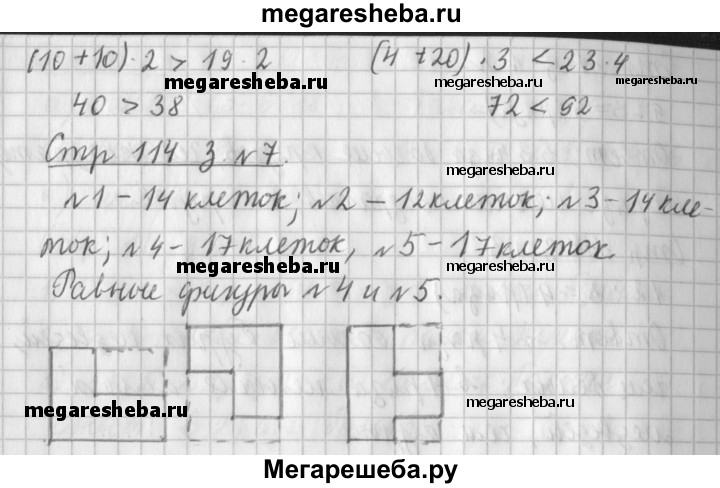 megaresheba.ru
(10 + 10) · 2 > 19 · 2 (4 + 20) · 3 < 23 · 4
megaresheba.ru megaresheba.ru megaresheba.ru
40 > 38 72 < 92
Стр 114 з. №7.
megaresheba.ru
№1 – 14 клеток; №2 – 12 клеток; №3 – 14 кле-
ток; №4 – 17 клеток, №5 – 17 клеток
megaresheba.ru megaresheba.ru
Равные фигуры №4 и №5.
megaresheba.ru megaresheba.ru
Мегарешеба.ру